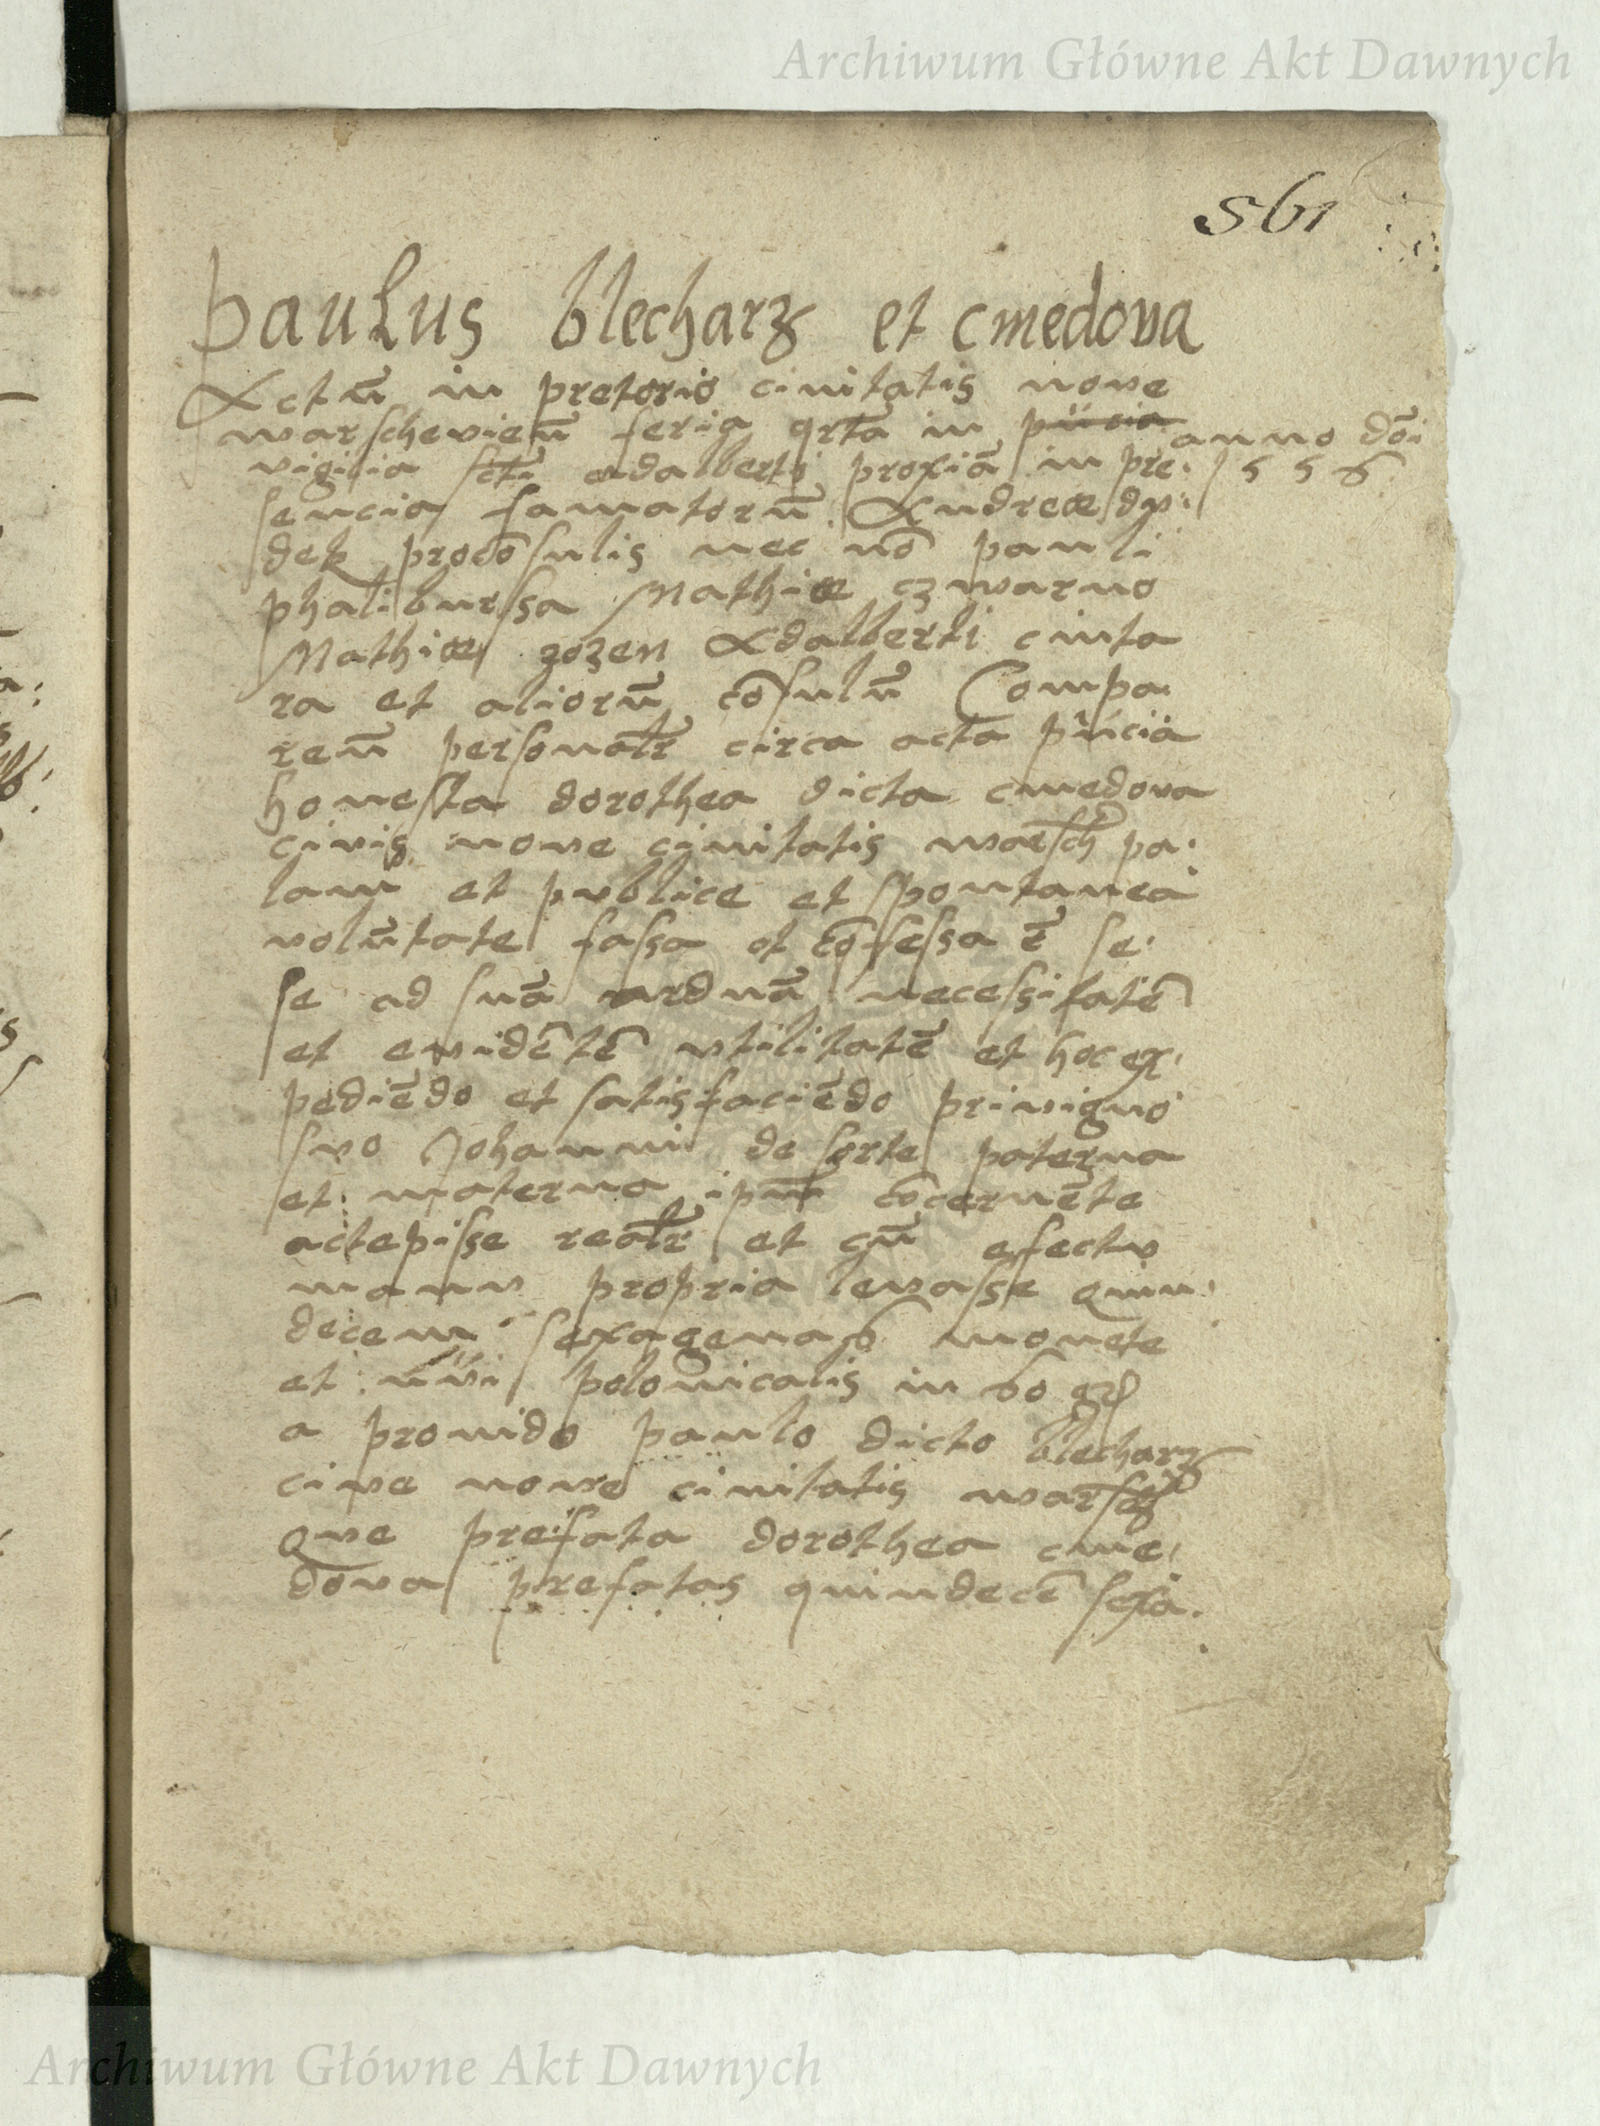 Archiwum Główne Akt Dawnych
561
Paulus blecharz et cmedova
Actū in pretorio civitatis nove
warscheviēn feria qrta in
anno dōi
vigilia scti adalberti proxiā in pre.
1556
sencia famatorū Andreæ dȳ:
dek procōsulis nec nō pauli
phalibursa Mathiæ czwarno
Mathiæ zozen Adalberti cinta
ra et aliorū cōsulū Compa.
reñ personalr̄ circa acta pn̄cia
honesta dorothea dicta cmedova
civis nove civitatis warsch pa.
lam et publice et spontanea
volūtate fassa et cōfessa ē se.
se ad suā arduā necessitatē
et evidētē utilitatē et hoc ex.
pediēdo et satisfaciēdo privigno
suo Johanni de sorte paterna
et materna ipm̄ cōcernēte
actepisse realr̄ et cū efectu
manu propria levasse quin.
decem sexagenas monete
et polonicalis in 60 gr
a provido paulo dicto blecharz
cive nove civitatis warsch
que prefata dorothea cme.
dova prefatas quindecē sexa.
Archiwum Główne Akt Dawnych